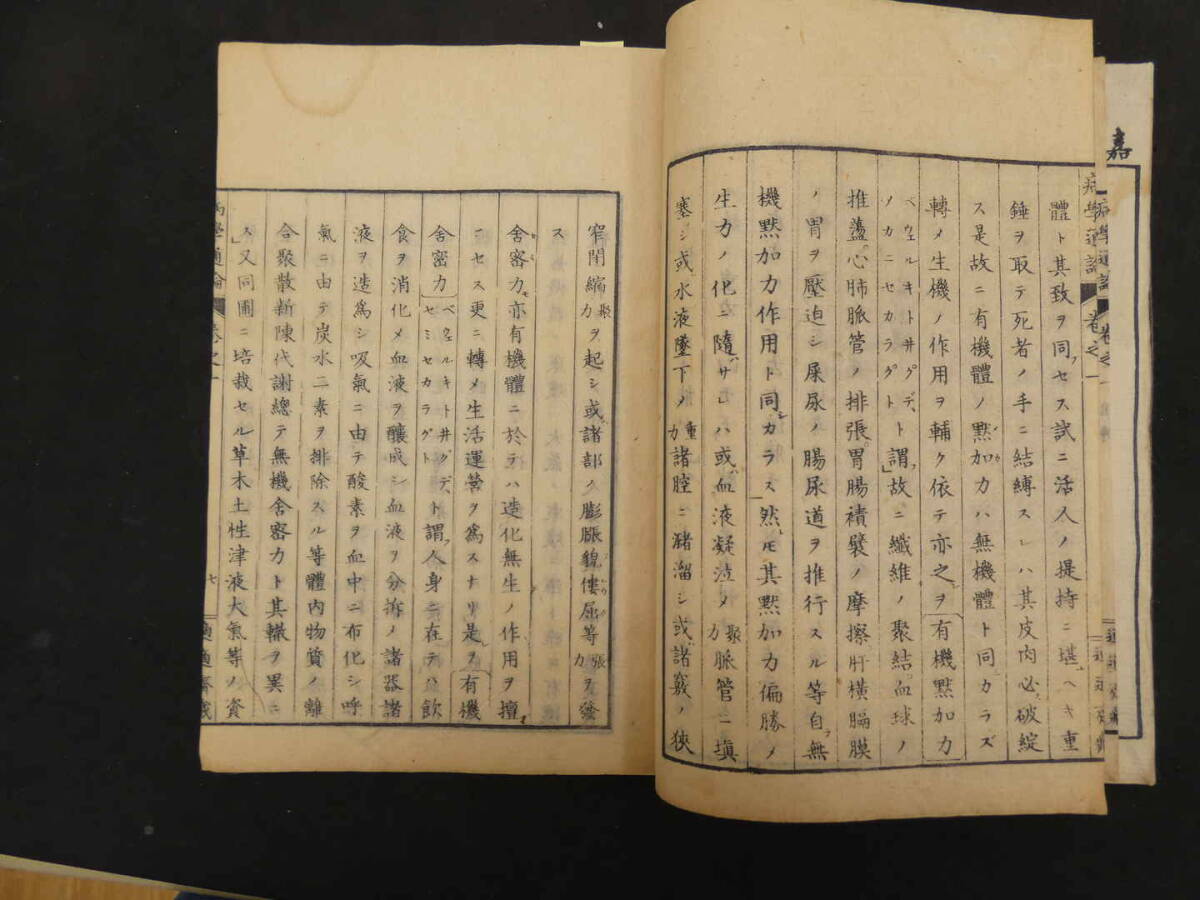 嘉
病學通論 卷之一
體ト其致ヲ同フセス試ニ活人ノ提持ニ堪ヘキ重
錘ヲ取テ死者ノ手ニ結縛スレハ其皮肉必破綻
ス是故ニ有機體ノ默加力ハ無機體ト同カラズ
轉メ生機ノ作用ヲ輔ク依テ亦之ヲ有機默加力
ベウェルキトヰグデ、
ソカニセカラグト
ト謂フ故ニ纖維ノ聚結血球ノ
推盪心肺脈管ノ排張胃腸襀襞ノ摩擦肝横膈膜
ノ胃ヲ壓迫シ屎尿ノ腸尿道ヲ推行スル等自ラ無
機默加力作用ト同カラス然𪜈其默加力偏勝メ
生力ノ化ニ隨ハサレハ或ハ血液凝泣メ聚力脈管ニ填
塞シ或水液墜下メ重力諸腔ニ瀦溜シ或諸竅ノ狹
窄閉縮聚力ヲ起シ或諸部ノ膨脹貌僂屈等張力ヲ發
ス
舍密力モ亦有機體ニ於テハ造化無生ノ作用ヲ擅
ニセス更ニ轉メ生活運營ヲ爲スナリ是ヲ有機
舍密力
ベウェルキトヰグデ、
セミセカラグト
ト謂フ人身ニ在テハ飲
食ヲ消化メ血液ヲ釀成シ血液ヲ分拆メ諸器諸
液ヲ造爲シ吸氣ニ由テ酸素ヲ血中ニ布化シ呼
氣ニ由テ炭水二素ヲ排除スル等體内物質ノ離
合聚散新陳代謝總テ無機舍密力ト其轍ヲ異ニ
ス又同圃ニ培栽セル草木土性津液大氣等ノ資
病學通論 卷之一 七 適適齋藏